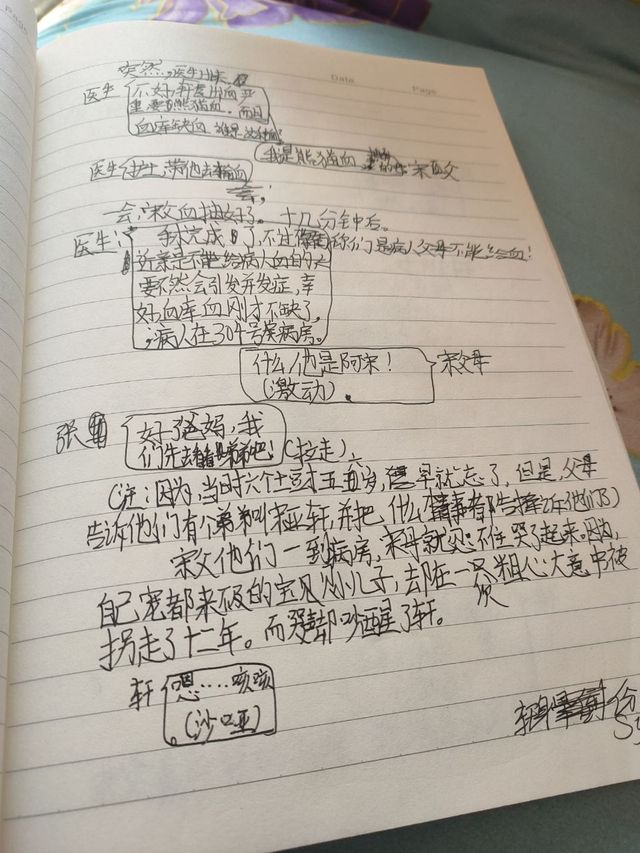 Date Page
突然,医生出来
医生 不好,再度出血严
重,要有熊猫血,而且
血库缺血,
我是熊猫血, 宋父
医生 护士,带他去输血
一会,宋父血抽好了。十几分钟后。
医生: 手术完成了,不过你们是病人父母不能给血!
近亲是不能给病人血的
要不然会引发并发症,幸
好血库血刚才不缺了,
病人在304号病房。
什么,他是阿宋! 宋父母
(激动)
张 好了爸妈,我
们先去看看弟弟吧! (拉走)。
(注:因为,当时六个土豆才五五岁,早就忘了,但是,父母
告诉他们有个弟弟叫宋亚轩,并把什么事都告诉他们了)
宋父他们一到病房,宋母就忍不住哭了起来。因为,
自己宠都来不及的宝贝小儿子,却在一次粗心大意中被
拐走了十二年。而哭声却吵醒了轩。
轩 嗯....咳咳
(沙哑)
份